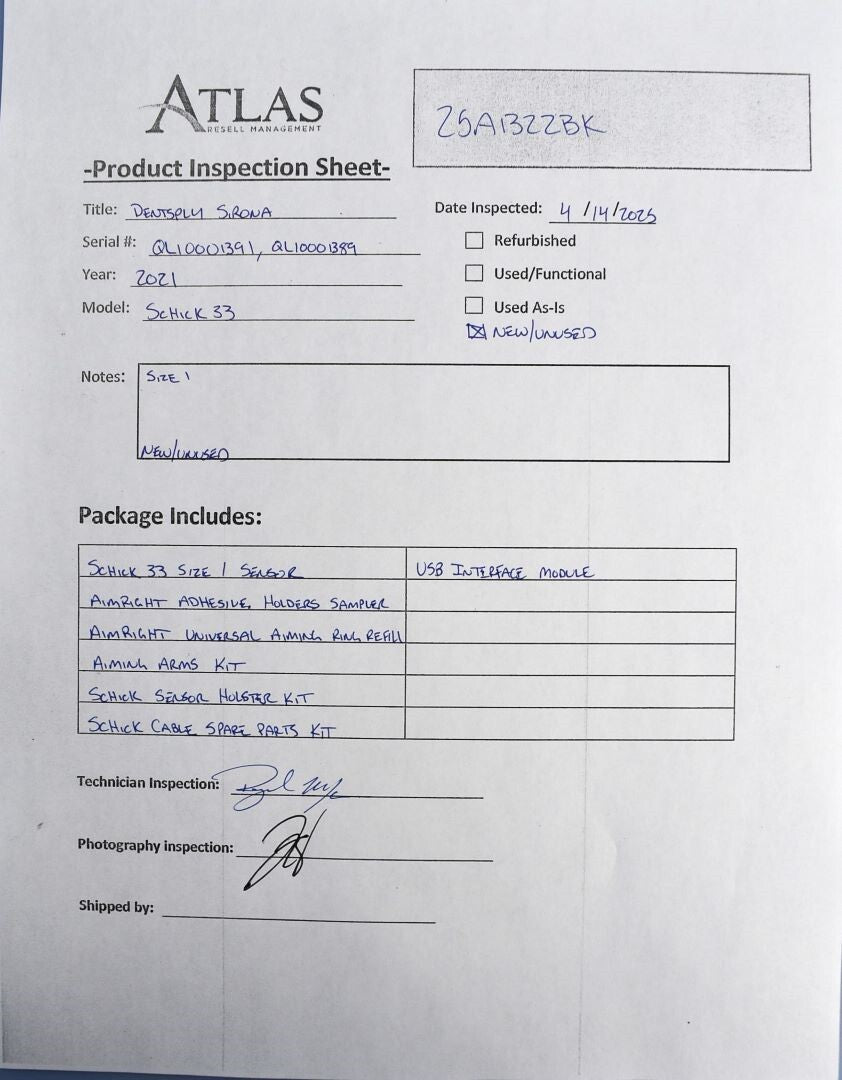 ATLAS
RESELL MANAGEMENT
25A1322BK
-Product Inspection Sheet-
Title: DENTSPLY SIRONA
Date Inspected: 4/14/2025
Serial #: QL10001391, QL10001389
Refurbished
Year: 2021
Used/Functional
Model: SCHICK 33
Used As-Is
NEW/UNUSED
Notes: SIZE 1
NEW/UNUSED
Package Includes:
SCHICK 33 SIZE 1 SENSOR
USB INTERFACE MODULE
AIMRIGHT ADHESIVE HOLDERS SAMPLER
AIMRIGHT UNIVERSAL AIMING RING REFILL
AIMING ARMS KIT
SCHICK SENSOR HOLSTER KIT
SCHICK CABLE SPARE PARTS KIT
Technician Inspection:
Photography inspection:
Shipped by: